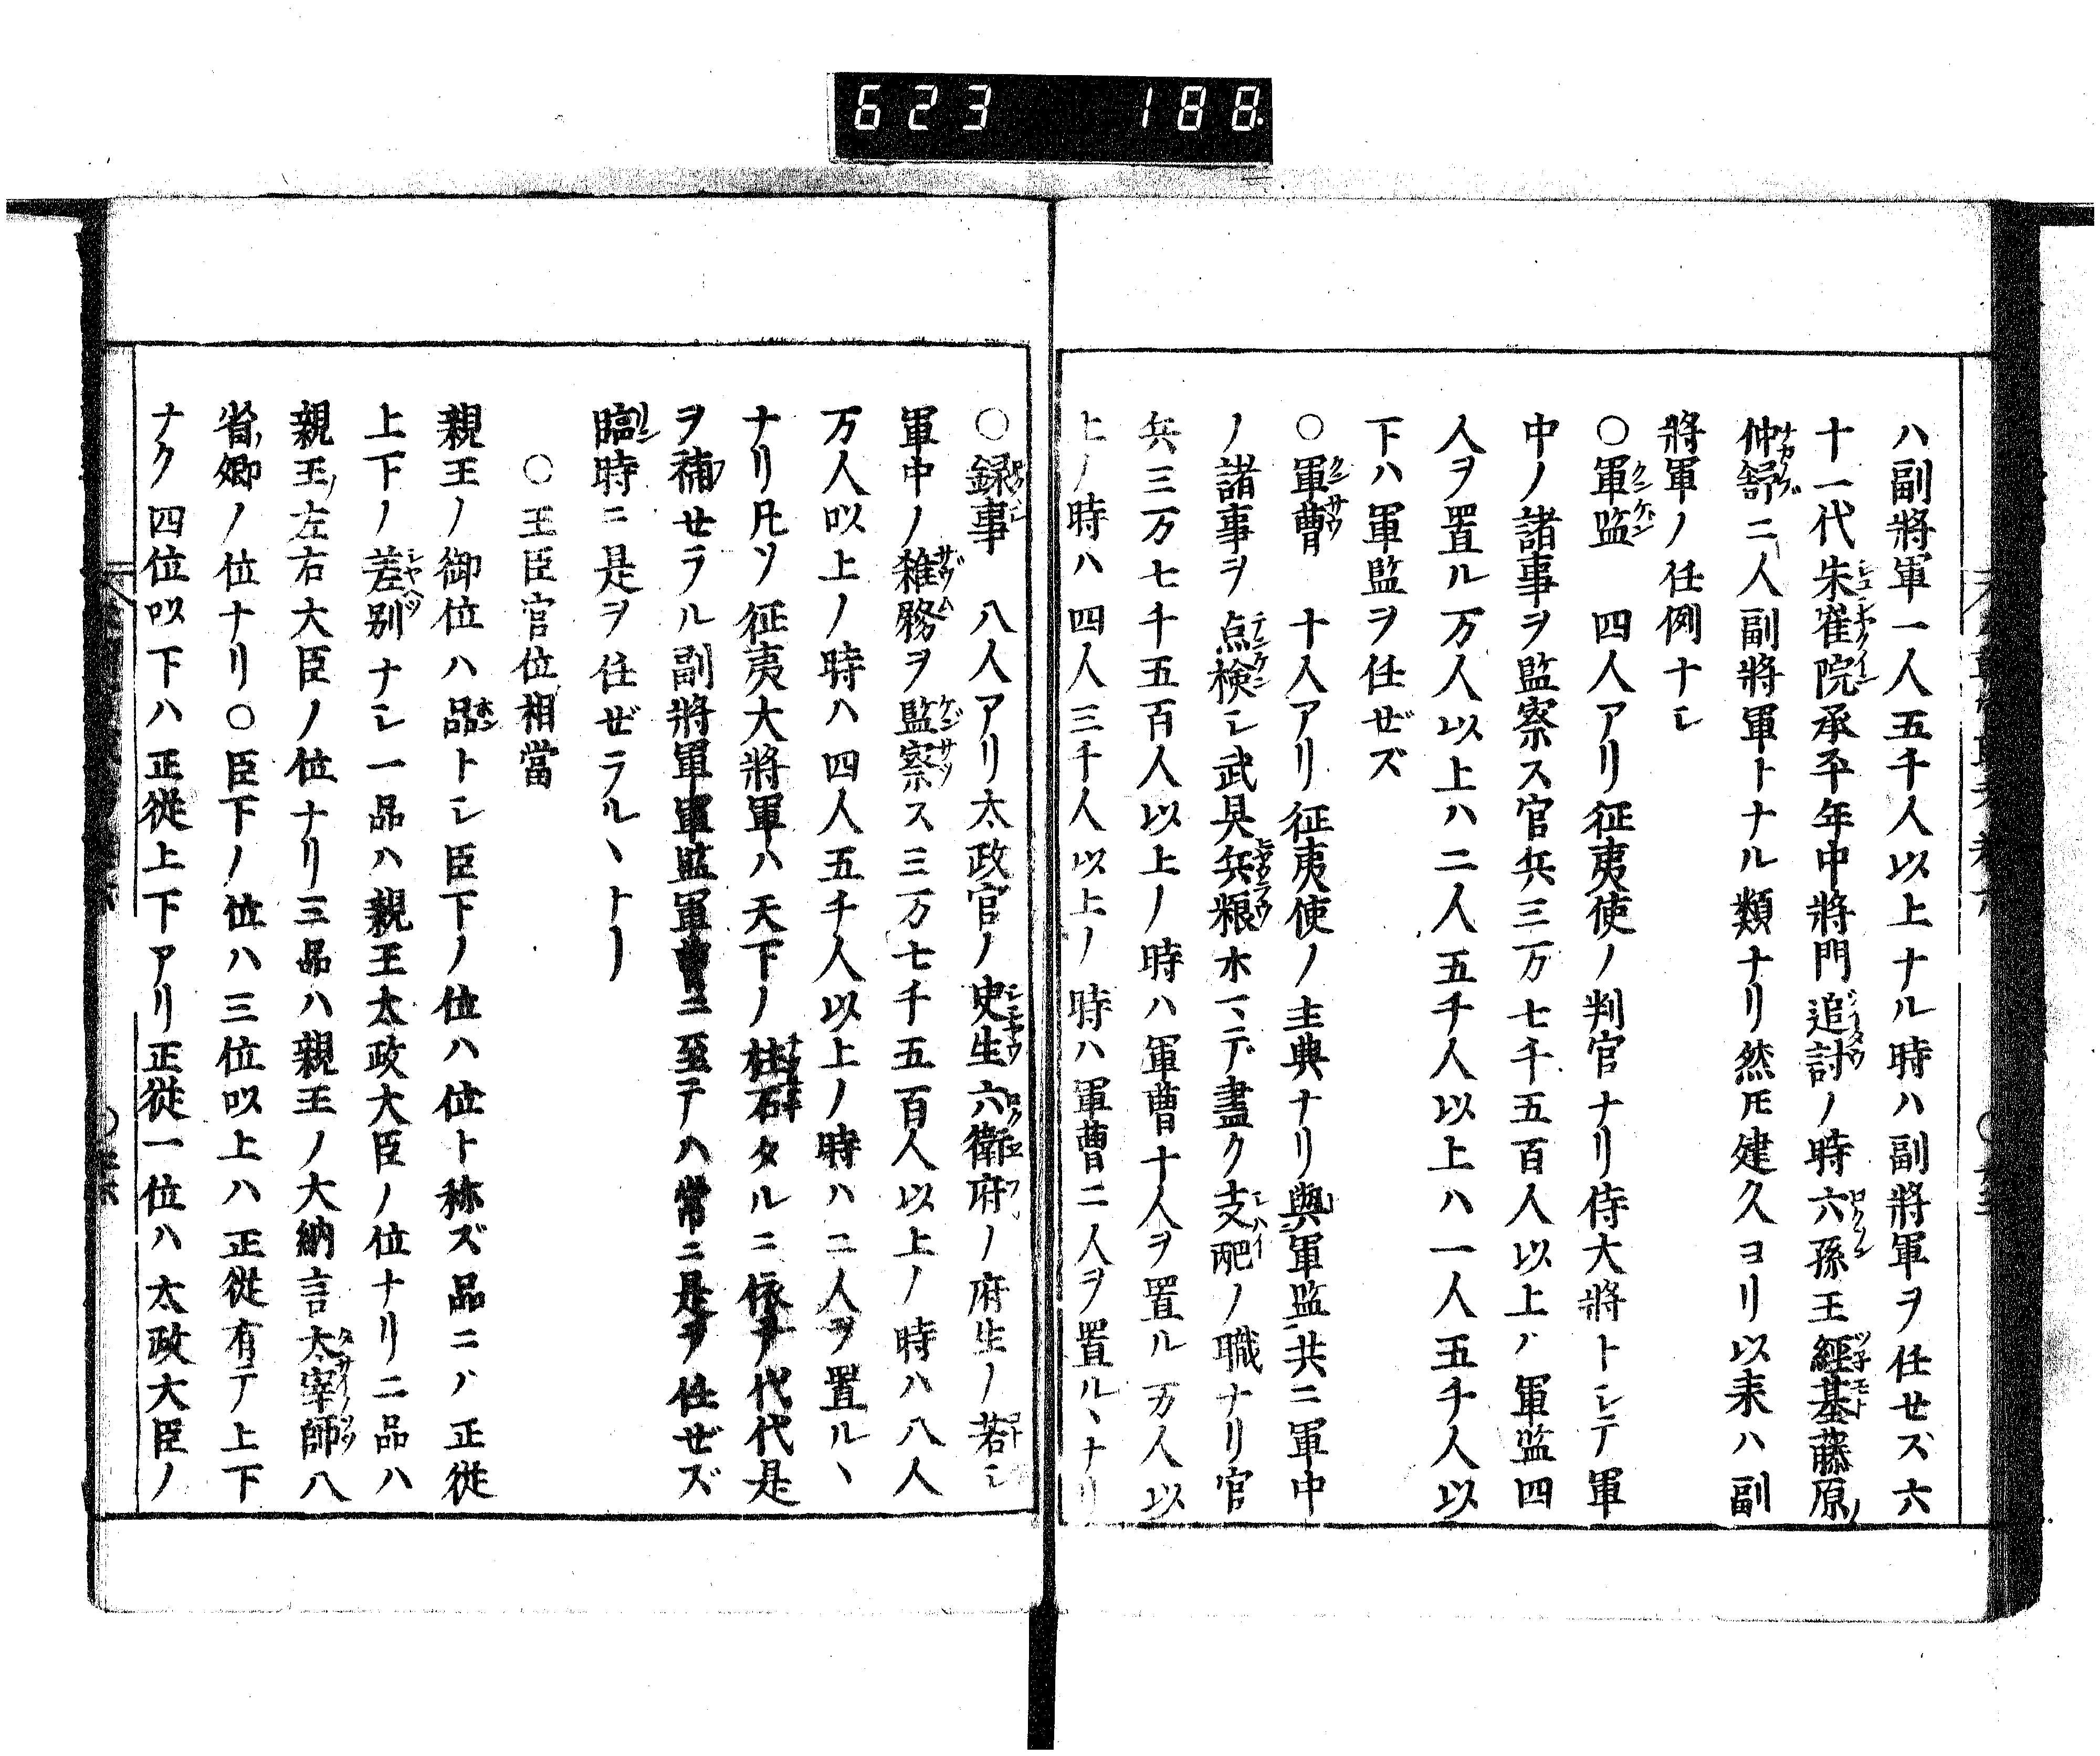 623 188
ハ副將軍一人五千人以上ナル時ハ副將軍ヲ任セズ六
十一代朱雀院承平年中將門追討ノ時六孫王經基藤原ノ
仲舒二人副將軍トナル類ナリ然𪜈建久ヨリ以来ハ副
將軍ノ任例ナシ
〇軍监 四人アリ征夷使ノ判官ナリ侍大將トシテ軍
中ノ諸事ヲ監察ス官兵三万七千五百人以上ハ軍监四
人ヲ置ル万人以上ハ二人五千人以上ハ一人五千人以
下ハ軍監ヲ任ゼズ
〇軍曹 十人アリ征夷使ノ主典ナリ與軍监共ニ軍中
ノ諸事ヲ点検シ武具兵粮木マデ盡ク支配ノ職ナリ官
兵三万七千五百人以上ノ時ハ軍曹十人ヲ置ル万人以
上ノ時ハ四人三千人以上ノ時ハ軍曹二人ヲ置ルヽナリ
〇録事 八人アリ太政官ノ史生六衛府ノ府生ノ若シ
軍中ノ雜務ヲ監察ス三万七千五百人以上ノ時ハ八人
万人以上ノ時ハ四人五千人以上ノ時ハ二人ヲ置ルヽ
ナリ凡ソ征夷大將軍ハ天下ノ柱石タルニ依テ代代是
ヲ補セラル副將軍軍监軍曹ニ至テハ常ニ是ヲ任ゼズ
臨時ニ是ヲ任ゼラルヽトー
〇王臣官位相當
親王ノ御位ハ品トシ臣下ノ位ハ位ト称ズ品ニハ正從
上下ノ差别ナシ一品ハ親王太政大臣ノ位ナリ二品ハ
親王左右大臣ノ位ナリ三品ハ親王ノ大納言太宰師八
省卿ノ位ナリ〇臣下ノ位ハ三位以上ハ正從有テ上下
ナク四位以下ハ正從上下アリ正從一位ハ太政大臣ノ